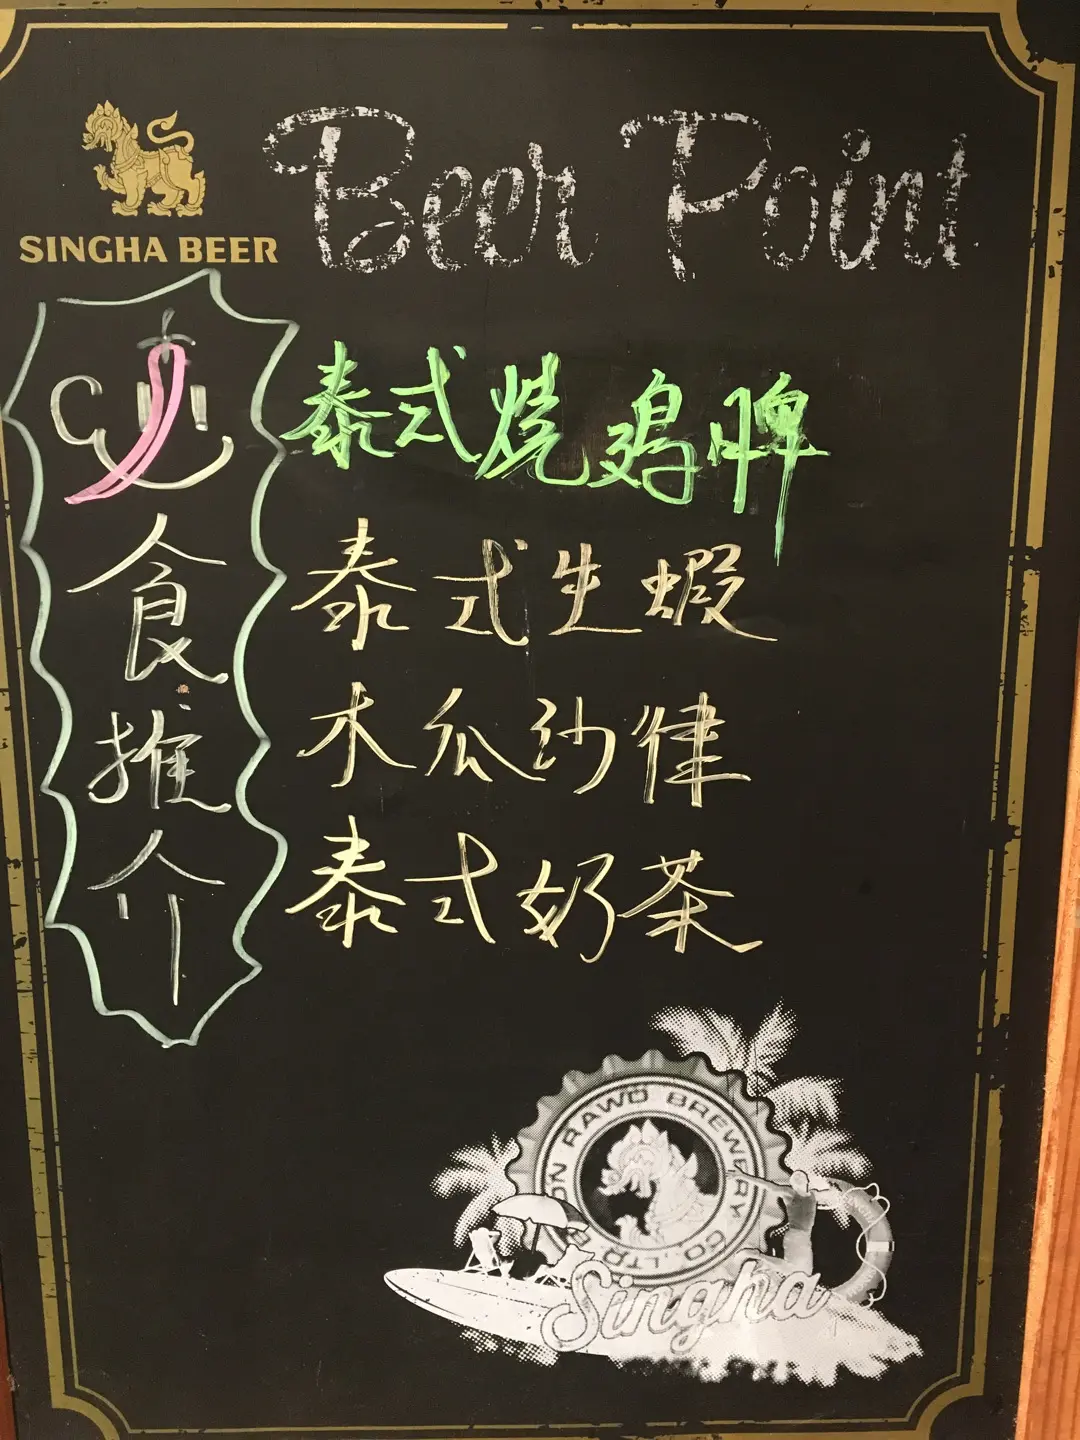 SINGHA BEER
Beer Point
必食推介
泰式燒鸡脾
泰式生蝦
木瓜沙律
泰式奶茶
RAWD BREWERY CO.,LTD.
Singha